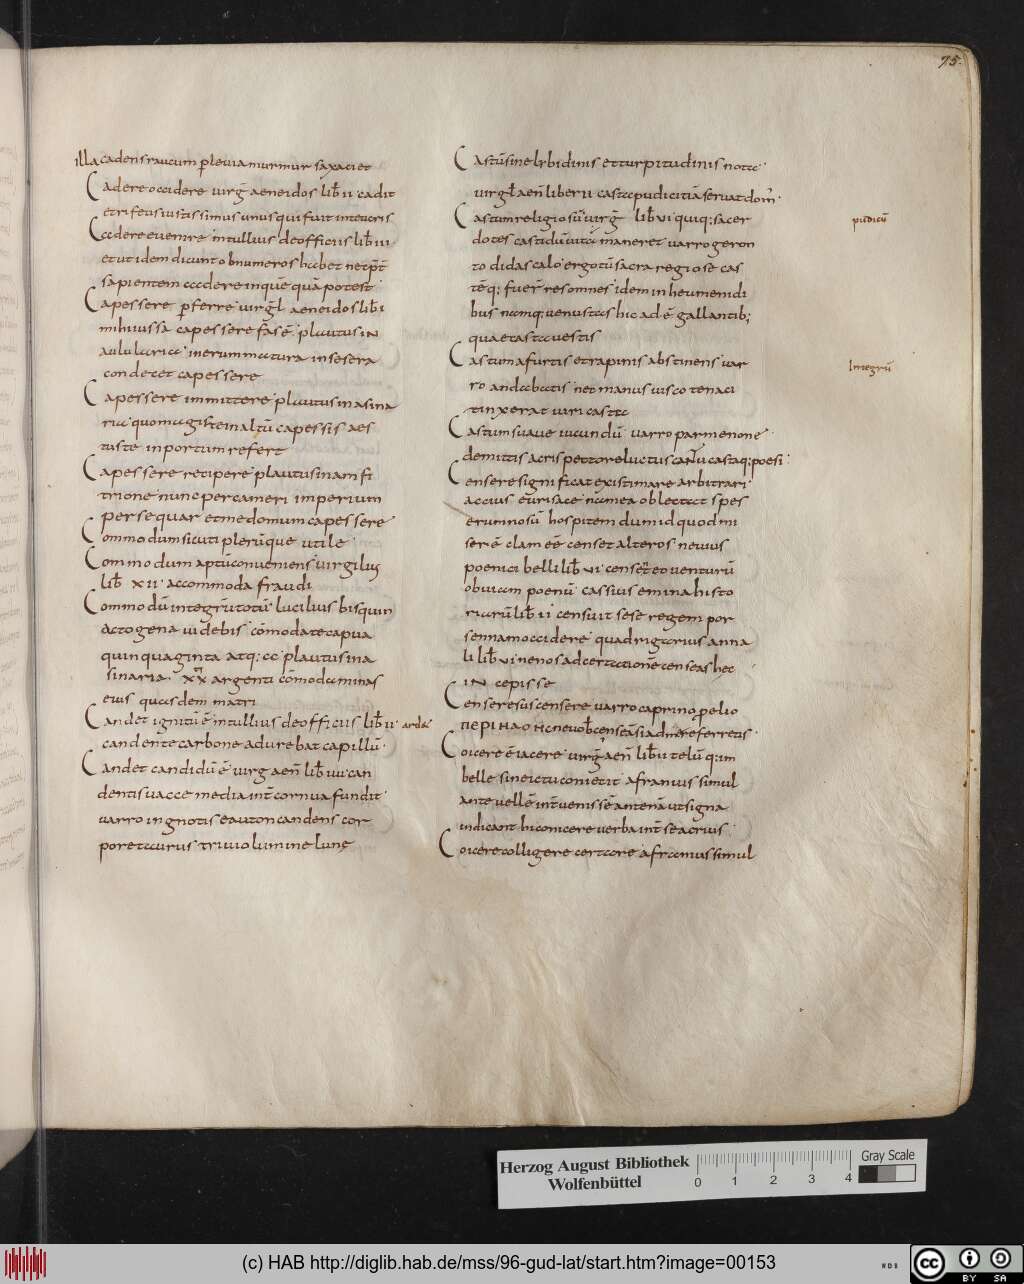 75.
illa cadens raucum p̱ leuia murmur saxa ciet
Cadere occidere uirḡ aeneidos lib̄ ii cadit
et rifeus iustissimus unus qui fuit inteucris
Cadere euenire intullius deofficiis lib̄ iii
et ut idem dicunt obnumeros habet
sapientem cadere inquē quā potest
Capessere p̱ferre uirgł aeneidos lib̄ i
mihi iussa capessere fas ē plautus in
aulularia inerum natura insesera
condecet capessere
Capessere immittere plautus inasina
ria quom capessis aes
tuste inportum refert
Capessere recipere plautus inamfi
trione nunc pergam eri imperium
persequar et me domum capessere
Commodum sicuti plerūque utile
Commodum aptū conueniens uirgilius
lib̄ xii accommoda fraudi
Commodū integrū totū lucilius bis quin
actogena uidebis cōmodatecapua
quinquaginta atq; cc plautus ina
sinaria xx argenti cōmodaminas
eius quasdem matri
Candet ignitū ē intullius deofficiis lib̄ ii ardet
candente carbone adurebat capillū
Candet candidū ē uirg aen̄ lib̄ iiii can
dentis uacce media int̄ cornua fundit
uarro ingnotis eauton candens cor
pore taurus triuio lumine lunę
Castū sine lybidinis et turpitudinis nota
uirgł aen̄ liber ii casta pudicitiā seruat dom̄
Castum religiosū uirḡ lib̄ vi quiq; sacer
dotes casti dū uita maneret uarro geron
to didascalo ergo tū sacra regiose cas
tēq; fuer̄ res omnes idem inheumenidi
bus namq; uenustas hic ad ē gallantib;
quae tasta uestis
Castum afurtis et rapinis abstinens uar
ro andabatis nec manus uisco tenaci
tinxerat uiri casta
Castum suaue iucundū uarro parmenone
demittis acris pectore luctus cantu castaq; poesi
Censere significat existimare arbitrari
accius eurisace nā mea oblectat spes
erumnosū hospitem dum id quod mi
serē clam eē censet alteros neuius
poenici belli lib̄ vi censet eo uenturū
obuiam poenū cassius emina histo
riarū lib̄ ii censuit sese regem por
sennam occidere quadrigarius anna
li lib̄ vi nenos ad certationē censeas hec
in cepisse
Censere suscensere uarro caprino p̱elio
ΠΕΡΙ ΗΔΟΗϹ
Coicere ē iacere uirḡ aen̄ lib̄ ii telū q; im
belle sine ictu coniecit afranius simul
ante uellē int̄uenissē antenā ut signa
indicant hi conicere uerba int̄ se acrius
Coicere colligere certare afranius simul
pudicū
Integrū
Herzog August Bibliothek
Wolfenbüttel
0 1 2 3 4
Gray Scale
(c) HAB http://diglib.hab.de/mss/96-gud-lat/start.htm?image=00153
WDB
cc BY SA